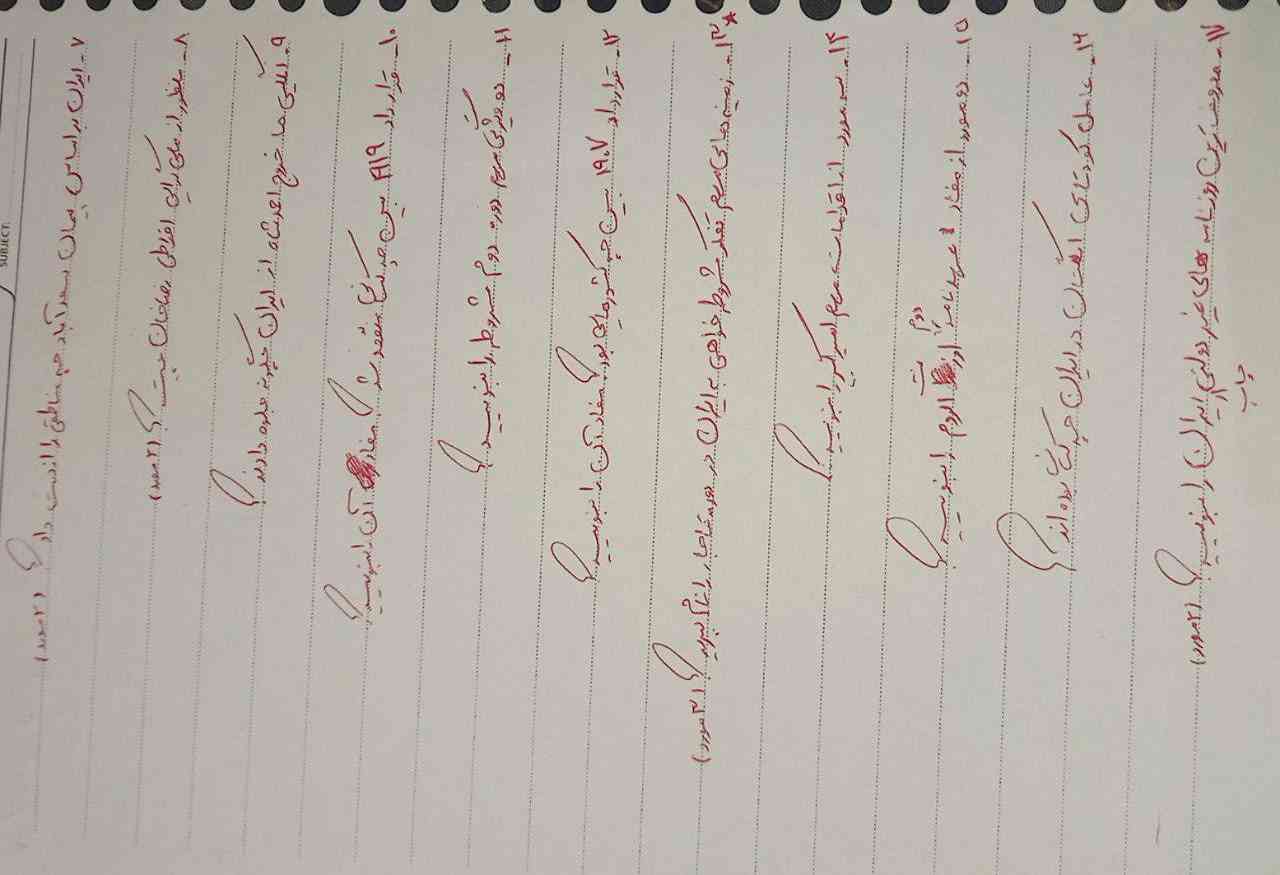 SUBJECT:
۷- ایران بر اساس پیمان سعدآباد چه مناطقی را از دست داد؟ (۲ مورد)
۸- منظور از ملی گرایی افراطی رضاخان چیست؟ (۲ مورد)
۹- انگلیسی ها خروج احمدشاه از ایران چگونه جلوه دادند؟
۱۰- قرارداد ۱۹۱۹ بین چه کسانی منعقد شد؟ مفاد آن را بنویسید؟
۱۱- دو ویژگی مهم دوره دوم مشروطه را بنویسید؟
۱۲- قرارداد ۱۹۰۷ بین چه کشورهایی بود؟ مفاد آن را بنویسید؟
*۱۳- زمینه های مهم تفکر مشروطه خواهی در ایران در دوره قاجار را نام ببرید؟ (۳ مورد)
۱۴- سه مورد از اقدامات مهم امیرکبیر را بنویسید؟
۱۵- دو مورد از مفاد عهدنامه ارزنة الروم دوم را بنویسید؟
۱۶- عامل کودتای انگلستان در ایران چه کسانی بوده اند؟
۱۷- معروف ترین روزنامه های غیر دولتی چاپ ایران را بنویسید؟ (۲ مورد)